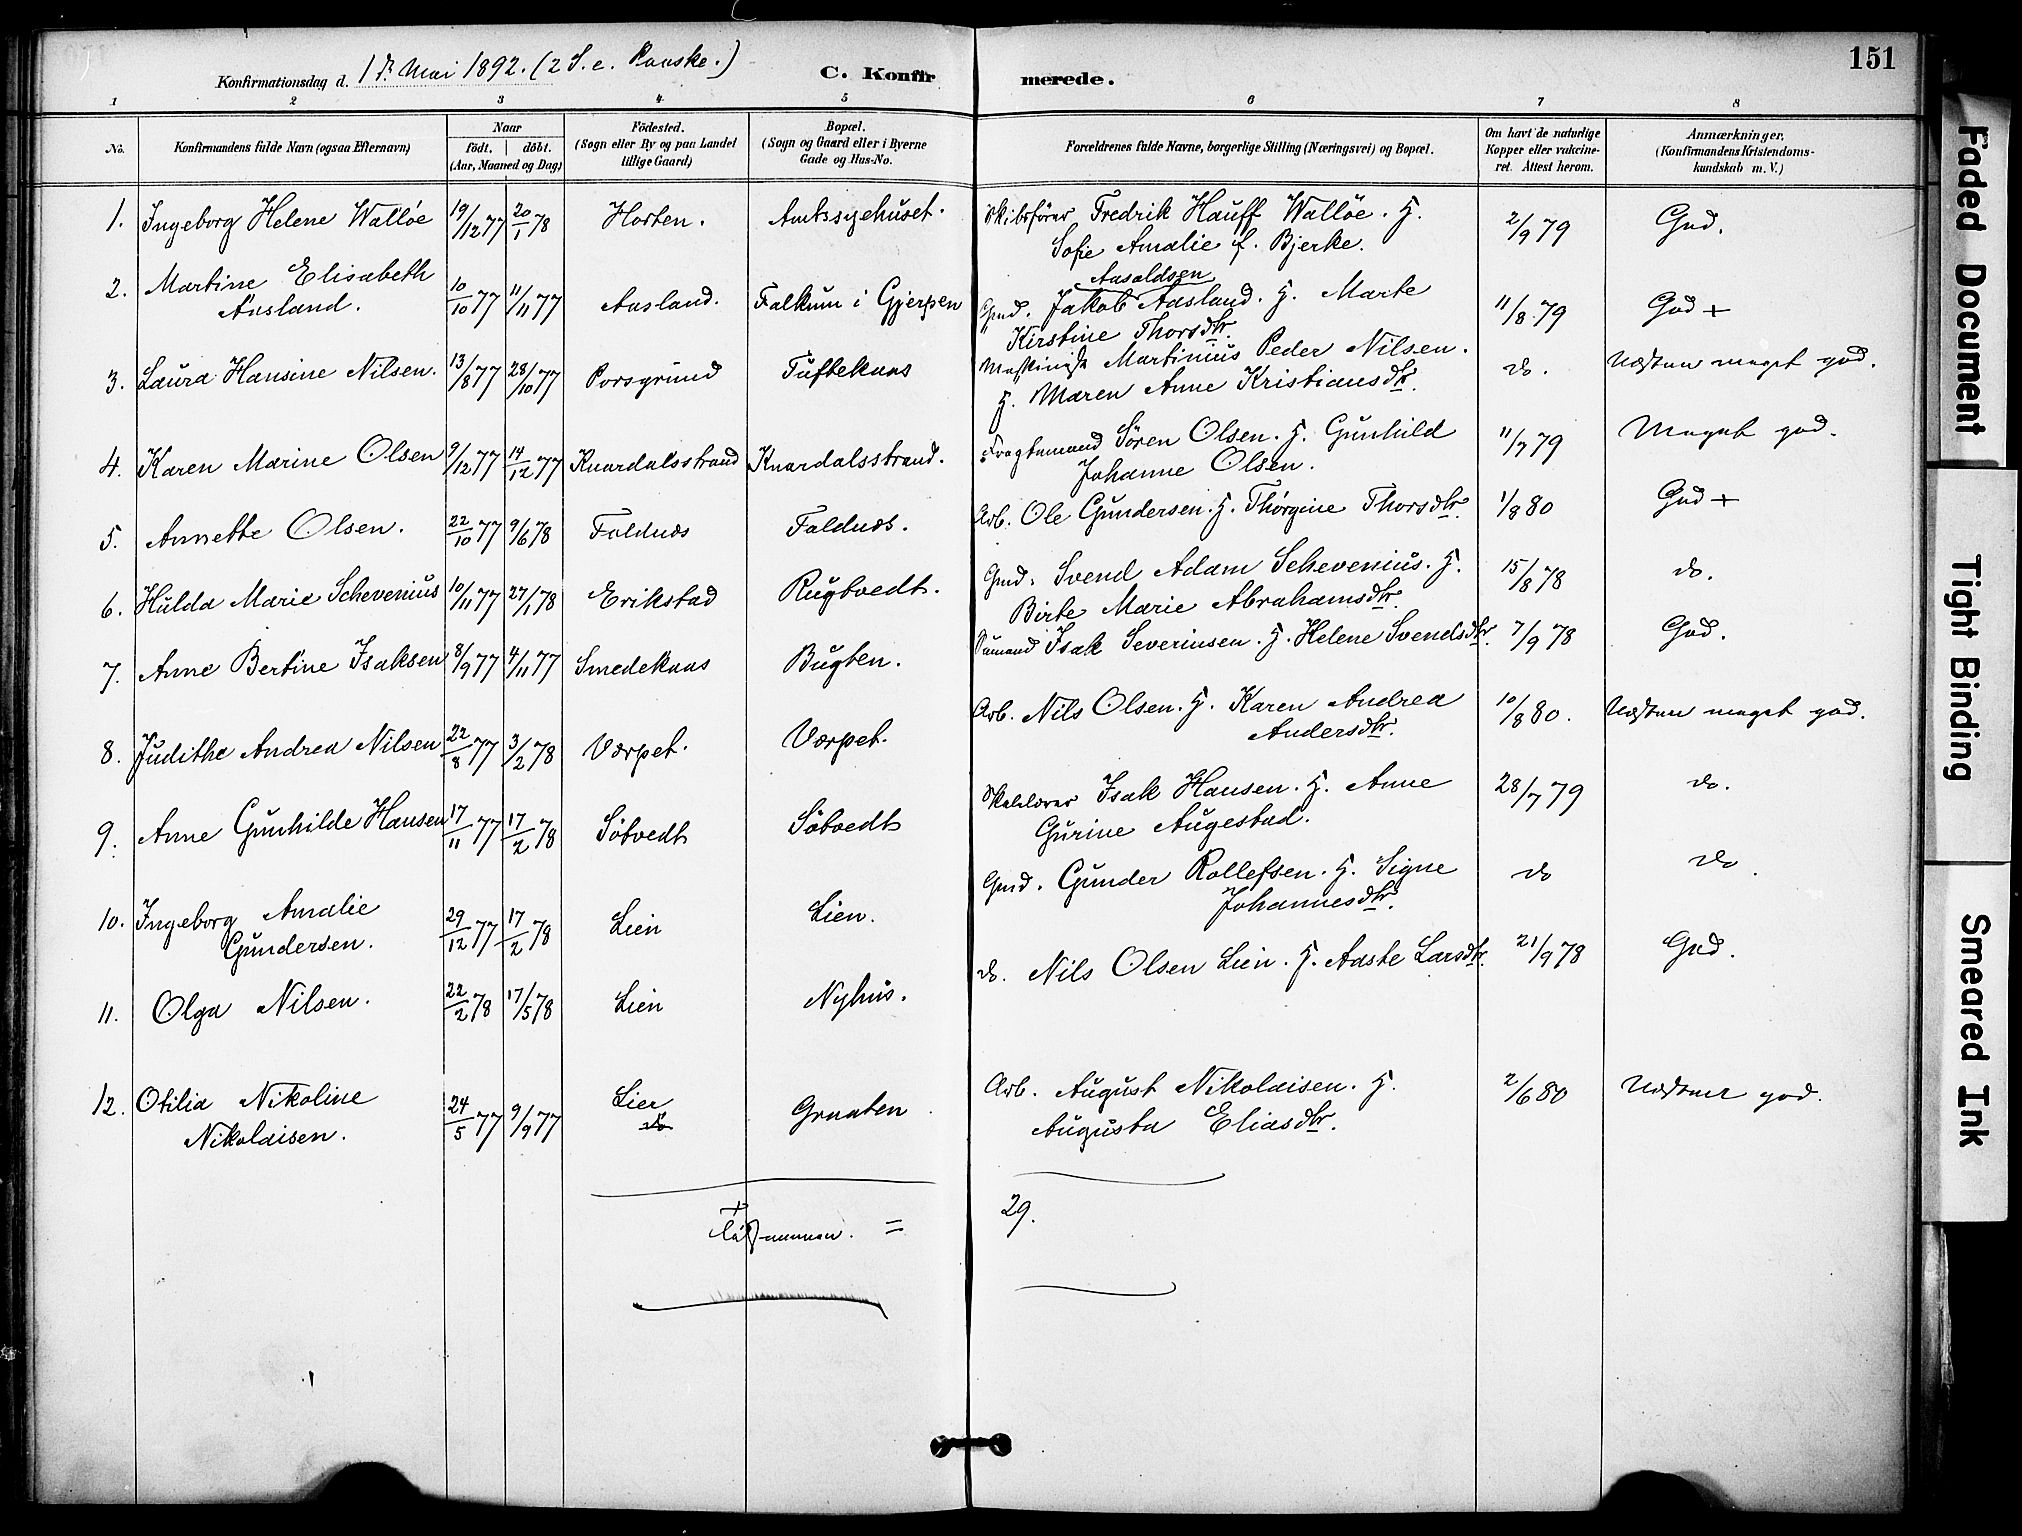 151
Konfirmationsdag d. 1ste Mai 1892. (2 S. e. Paaske.) C. Konfirmerede.
1 2 3 4 5 6 7 8
No. Konfirmandens fulde Navn (ogsaa Efternavn) Naar Födested. Bopæl. Forældrenes fulde Navne, borgerlige Stilling (Næringsvei) og Bopæl. Om havt de naturlige Anmærkninger,
födt. döbt. (Sogn eller By og paa Landet (Sogn og Gaard eller i Byerne Kopper eller vakcine- (Konfirmandens Kristendoms-
(Aar, Maaned og Dag) tillige Gaard) Gade og Hus-No. ret. Attest herom. kundskab m. V.)
1. Ingeborg Helene Walløe 19/12 77 20/1 78 Horten. Amtssygehuset. Skibsfører Fredrik Hauff Walløe. H. 2/9 79 God.
Sofie Amalie f. Bjerke.
2. Martine Elisabeth 10/10 77 11/11 77 Aasland. Falkum i Gjerpen Aasoldsen
Aasland. Gmd. Jakob Aasland. H. Marte 11/8 79 God +
Kirstine Thorsdtr.
3. Laura Hansine Nilsen. 13/8 77 28/10 77 Porsgrund Tuftekaas Maskinist Martinius Peder Nilsen. do. Næsten meget god.
H. Maren Anne Kristiansdtr.
4. Karen Marine Olsen 9/12 77 14/12 77 Knardalsstrand Knardalsstrand. Fragtemand Søren Olsen. H. Gunhild 11/7 79 Meget god.
Johanne Olsen.
5. Annette Olsen. 22/10 77 9/6 78 Foldnæs Foldnæs. Arb. Ole Gundersen. H. Thorgine Thorsdtr. 1/8 80 God +
6. Hulda Marie Schevenius 10/11 77 27/1 78 Erikstad Rugtvedt. Gmd. Svend Adam Schevenius. H. 15/8 78 do.
Birte Marie Abrahamsdtr.
7. Anne Bertine Isaksen 8/9 77 4/11 77 Smedekaas Bugten. Sømand Isak Severinsen. H. Helene Svendsdtr. 7/9 78 God.
8. Judithe Andrea Nilsen 22/8 77 3/2 78 Værpet. Værpet. Arb. Nils Olsen. H. Karen Andrea 10/8 80. Næsten meget god.
Andersdtr.
9. Anne Gunhilde Hansen 17/11 77 17/2 78 Søtvedt Søtvedt Isak Hansen. H. Anne 28/7 79 do.
Gurine Augestad.
10. Ingeborg Amalie 29/12 77 17/2 78 Lien Lien. Gmd. Gunder Rollefsen. H. Signe do do.
Gundersen. Johannesdtr.
11. Olga Nilsen. 22/2 78 17/5 78 Lien Nyhus. do. Nils Olsen Lien. H. Aaste Larsdtr. 21/9 78 God.
12. Otilia Nikoline 24/5 77 9/9 77 Lier Graaten Arb. August Nikolaisen. H. 2/6 80 Næsten god.
Nikolaisen. do Augusta Eliasdtr.
Tilsammen. = 29.
Faded Document
Tight Binding
Smeared Ink